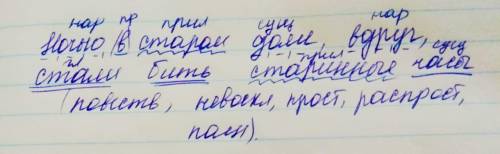 нар пр прил сущ нар
Ночью в старом доме вдруг,
гл прил сущ
стали бить старинные часы
(повеств, невоскл, прост, распрост,
полн).